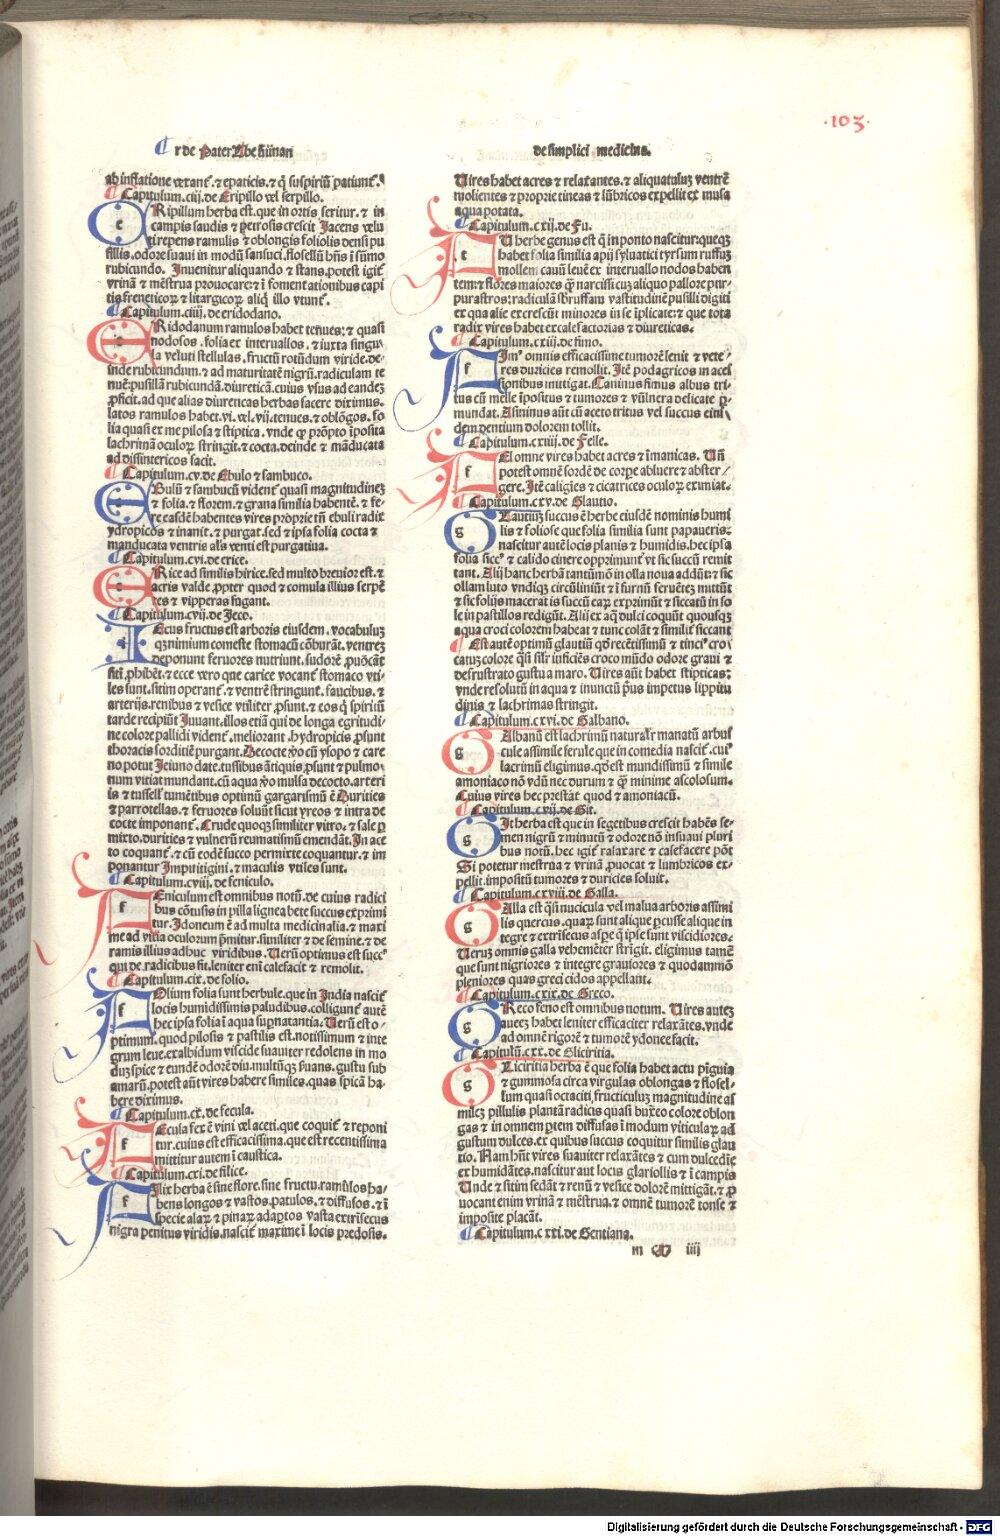 ·103·
de simplici medicina.
ab inflatione vexant᷑. ⁊ epaticis. ⁊ q̇ suspiriū patiunt᷑.
Capitulum.ciij.de Eripillo vel serpillo.
ERipillum herba est. que in ortis seritur. ⁊ in
campis saudis ⁊ petrosis crescit Jacens velu
ti repens ramulis ⁊ oblongis foliolis densi pu
sillis. odore suaui in modū sansuci. flosellū hn̄s ī sūmo
rubicundo. Inuenitur aliquando ⁊ stans. potest igit᷑
vrinā ⁊ mēstrua prouocare: ⁊ ī fomentationibus capi
tis freneticoꝝ ⁊ litargicoꝝ aliq̇ illo vtunt᷑.
Capitulum.ciiij.de eridodano.
ERidodanum ramulos habet tenues: ⁊ quasi
nodosos. folia ex interuallos. ⁊ iuxta singu
la veluti stellulas. fructū rotūdum viride. de-
inde rubicundum. ⁊ ad maturitatē nigrū. radiculam te
nuē: pusillā rubicundā. diureticā. cuius vsus ad eandez
ꝓficit. ad que alias diureticas herbas facere diximus.
latos ramulos habet. vi. vel. vij. tenues. ⁊ oblōgos. fo
lia quasi ex me pilosa ⁊ stiptica. vnde qͦ prōpto īposita
lachrimā oculoꝝ stringit. ⁊ cocta. deinde ⁊ māducata
ad dissintericos facit.
Capitulum.cv.de Ebulo ⁊ sambuco.
EBulū ⁊ sambucū vident᷑ quasi magnitudinez
⁊ folia. ⁊ florem. ⁊ grana similia habentē. ⁊ fe-
re easdē habentes vires pròprie tn̄ ebuli radix
ydropicos ⁊ inanit. ⁊ purgat. sed ⁊ ipsa folia cocta ⁊
manducata ventris als̄ venti est purgatiua.
Capitulum.cvi.de erice.
ERice ad similis hirice. sed multo breuior est. ⁊
acris valde ꝓpter quod ⁊ comula illius serpē
tes ⁊ vipperas fugant.
Capitulum.cvij.de Jeco.
IEcus fructus est arboris eiusdem. vocabuluz
qꝫ nimium comeste stomacū cōburāt. ventrez
deponunt feruores nutriunt. sudorē ꝓuōcāt
siti ꝓhibēt. ⁊ ecce vero que carice vocant᷑ stomaco vti-
les sunt. sitim operant᷑. ⁊ ventrē stringunt. faucibus. ⁊
arterijs. renibus ⁊ vesice vtiliter ꝓsunt. ⁊ eos q̇ spiriciū
tarde recipiūt Juuant. illos etiā qui de longa egritudi-
ne colore pallidi vident᷑. meliorant. hydropicis ꝓsunt
thoracis sorditiē purgant. Decocte ꝟo cū ysopo ⁊ care
no potut Jeiuno date. tussibus ātiquis ꝓsunt ⁊ pulmo-
num vitia t mundant. cū aqua ꝟo mulsa decocto. arteri
is ⁊ tussell᷑ tumētibus optimū gargarismū ē Durities
⁊ parrotellas. ⁊ feruores soluūt sicut yreos ⁊ intra de
cocte imponant᷑. Crude quoqꝫ similiter vitro. ⁊ sale ꝑ
mixto. durities ⁊ vulnerū reumatismū emendāt. In ace
to coquant᷑. ⁊ cū eodē succo permixte coquantur. ⁊ im
ponantur Impitigini. ⁊ maculis vtiles sunt.
Capitulum.cviij.de feniculo.
FEniculum est omnibus notū. de cuius radici
bus cōtusis in pilla lignea hete succus exprimi
tur. Idoneum ē ad multa medicinalia. ⁊ maxi
me ad vitia oculorum ꝑmitur. similiter ⁊ de semine. ⁊ de
ramis illius adhuc viridibus. Verū optimus est succꝰ
qui de radicibus fit. leniter eni᷑ calefacit ⁊ remolit.
Capitulum.cix.de folio.
FOlium folia sunt herbule. que in India nascit᷑
locis humidissimis paludibus. colligunt᷑ autē
hec ipsa folia ī aqua supnatantia. Verū est o-
ptimum. quod pilosis ⁊ pastilis est. notissimum ⁊ inte
grum leue. exalbidum viscide suauiter redolens in mo
duz spice ⁊ eundē odorē diu. multūqꝫ ẜuans. gustu sub
amarū. potest aūt vires habere similes. quas spicā ha-
bere diximus.
Capitulum.cx.de fecula.
FEcula fex ē vini vel aceti. que coquit᷑ ⁊ reponi
tur. cuius est efficacissima. que est recentissima
mittitur autem ī caustica.
Capitulum.cxi.de filice.
FIlix herba ē sine flore. sine fructu. ramulos ha-
bens longos ⁊ vastos. patulos. ⁊ diffusos. ⁊ ī
specie alaꝝ ⁊ pinaꝝ adaptos vasta extrisecus
nigra penitus viridis. nascit᷑ maxime ī locis predosis.
Vires habet acres ⁊ relaxantes. ⁊ aliquatuluz ventrē
molientes ⁊ proprie tineas ⁊ lūbricos expellit ex musa
aqua potata.
Capitulum.cxij.de Fu.
FU herbe genus est q̇ in ponto nascitur: queqꝫ
habet folia similia apij syluatici tyrsum ruffuz
mollem cauū leuē ex interuallo nodos haben
tem: ⁊ flores maiores qͣꝫ narcissi cuz aliquo pallore pur-
purastros: radiculā sbruffam vastitudinē pusilli digiti
ex qua alie excrescūt minores in se īplicate: ⁊ que tota
radix vires habet excalefactorias ⁊ diureticas.
Capitulum.cxiij.de fimo.
FImꝰ omnis efficacissime tumorē lenit ⁊ vete-
res duricies remollit. Itē podagricos in aces
sionibus mitigat. Caninus fimus albus tri-
tus cū melle īpositus ⁊ tumores ⁊ vūlnera delicate ꝑ-
mundat. Asininus aūt cū aceto tritus vel succus eius
dem dentium dolorem tollit.
Capitulum.cxiiij.de Felle.
FEl omne vires habet acres ⁊ īmanicas. Vn̄
potest omnē sordē de corꝑe abluere ⁊ abster-
gere. Itē caligīes ⁊ cicatrices oculoꝝ exuniat.
Capitulum.cxv.de Glautio.
GLautiuꝫ succus ē herbe eiusdē nominis humi
lis ⁊ foliose que folia similia sunt papaueris:
nascitur autē locis planis ⁊ humidis. hec ipsa
folia siccꝰ ⁊ calido cinere opprimunt᷑ vt sic succū remit
tant. Alij hanc herbā tantūmō in olla noua addūt: ⁊ sic
ollam luto vndiqꝫ circūliniūt ⁊ ī furnū feruētez mittūt
⁊ sic folijs maceratis succū eaꝝ exprimūt ⁊ siccatū in so
le in pastillos redigūt. Alij ex aq̄ dulci coquūt quousqꝫ
aqua croci colorem habeat ⁊ tunc colāt ⁊ similit᷑ siccant
Est autē optimū glautiū qd̄ recētissimū ⁊ tinciꝰ cro
catuz colore q̄si silꝛ inficiēs croco mūdo odore graui ⁊
desrustrato gustu amaro. Vires aūt habet stipticas:
vnde resolutū in aqua ⁊ inunctū p̄us impetus lippitu
dinis ⁊ lachrimas stringit.
Capitulum.cxvi.de Galbano.
GAlbanū est lachrimū naturalꝛ manatū arbus
cule assimile ferule que in comedia nascit᷑. cuiꝰ
lacrimū eligimus. qd̄ est mundissimū ⁊ simile
amoniaco nō vdū nec durum ⁊ qͣꝫ minime ascolosum.
Cuius vires hec prestāt quod ⁊ amoniacū.
Capitulum.cxvij.de Git.
GIt herba est que in segetibus crescit habēs se-
men nigrū ⁊ minutū ⁊ odore nō insuaui pluri
bus notū. hec igit᷑ ralaxare ⁊ casefacere pōt
Si potetur mestrua ⁊ vrinā ꝓuocat ⁊ lumbricos ex-
pellit. impositū tumores ⁊ duricies soluit.
Capitulum.cxviij.de Galla.
GAlla est q̄si nucicula vel malua arboris assimi
lis quercus. quaꝝ sunt alique ꝑcusse alique in
tegre ⁊ extrisecus asꝑe q̇ ipse sunt viscidiores.
Veruꝫ omnis galla vehemēter strigit. eligimus tamē
que sunt nigriores ⁊ integre grauiores ⁊ quodammō
pleniores quas greci cidos appellant.
Capitulum.cxix.de Greco.
GReco feno est omnibus notum. Vires autez
aueez habet leniter efficaciter relaxātes. vnde
ad omnē rigorē ⁊ tumorē ydonee facit.
Capitulū.cxx.de Gliciritia.
GLiciritia herba ē que folia habet actu pīguia
⁊ gummosa circa virgulas oblongas ⁊ flosel-
lum quasi octaciti. fructuqꝫ magnitudine as
milez pillulis plantā radicus quasi buxeo colore oblon
gas ⁊ in omnem ꝑtem diffusas ī modum viticulaꝝ ad
gustum dulces. ex quibus succus coquitur similis glau
tio. Nam hn̄t vires suauiter relaxātes ⁊ cum dulcedīe
ex humidātes. nascitur aut locis glariollis ⁊ ī campis
Vnde ⁊ sitim sedāt ⁊ renū ⁊ vesice dolorē mittigāt. ⁊ ꝓ
uocant enim vrinā ⁊ mēstrua. ⁊ omnē tumorē tonse ⁊
imposite placāt.
Capitulum.cxxi.de Gentiana.
m iiij
Digitalisierung gefördert durch die Deutsche Forschungsgemeinschaft - DFG